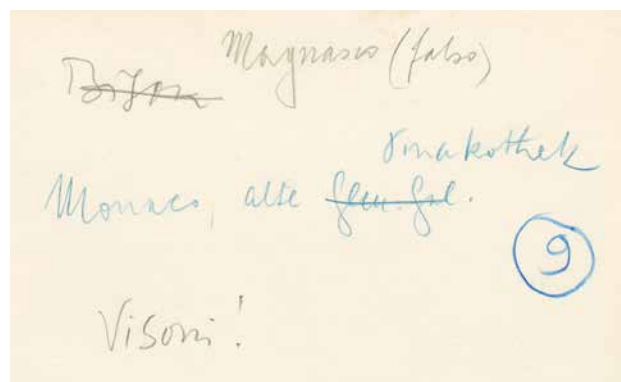 Magnasco (falso)
Pinakothek
Monaco, alte
9
Visoni!